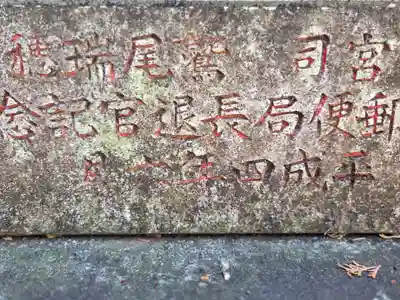 宮司 鷲尾瑞穂
郵便局長退官記念
平成四年十一月